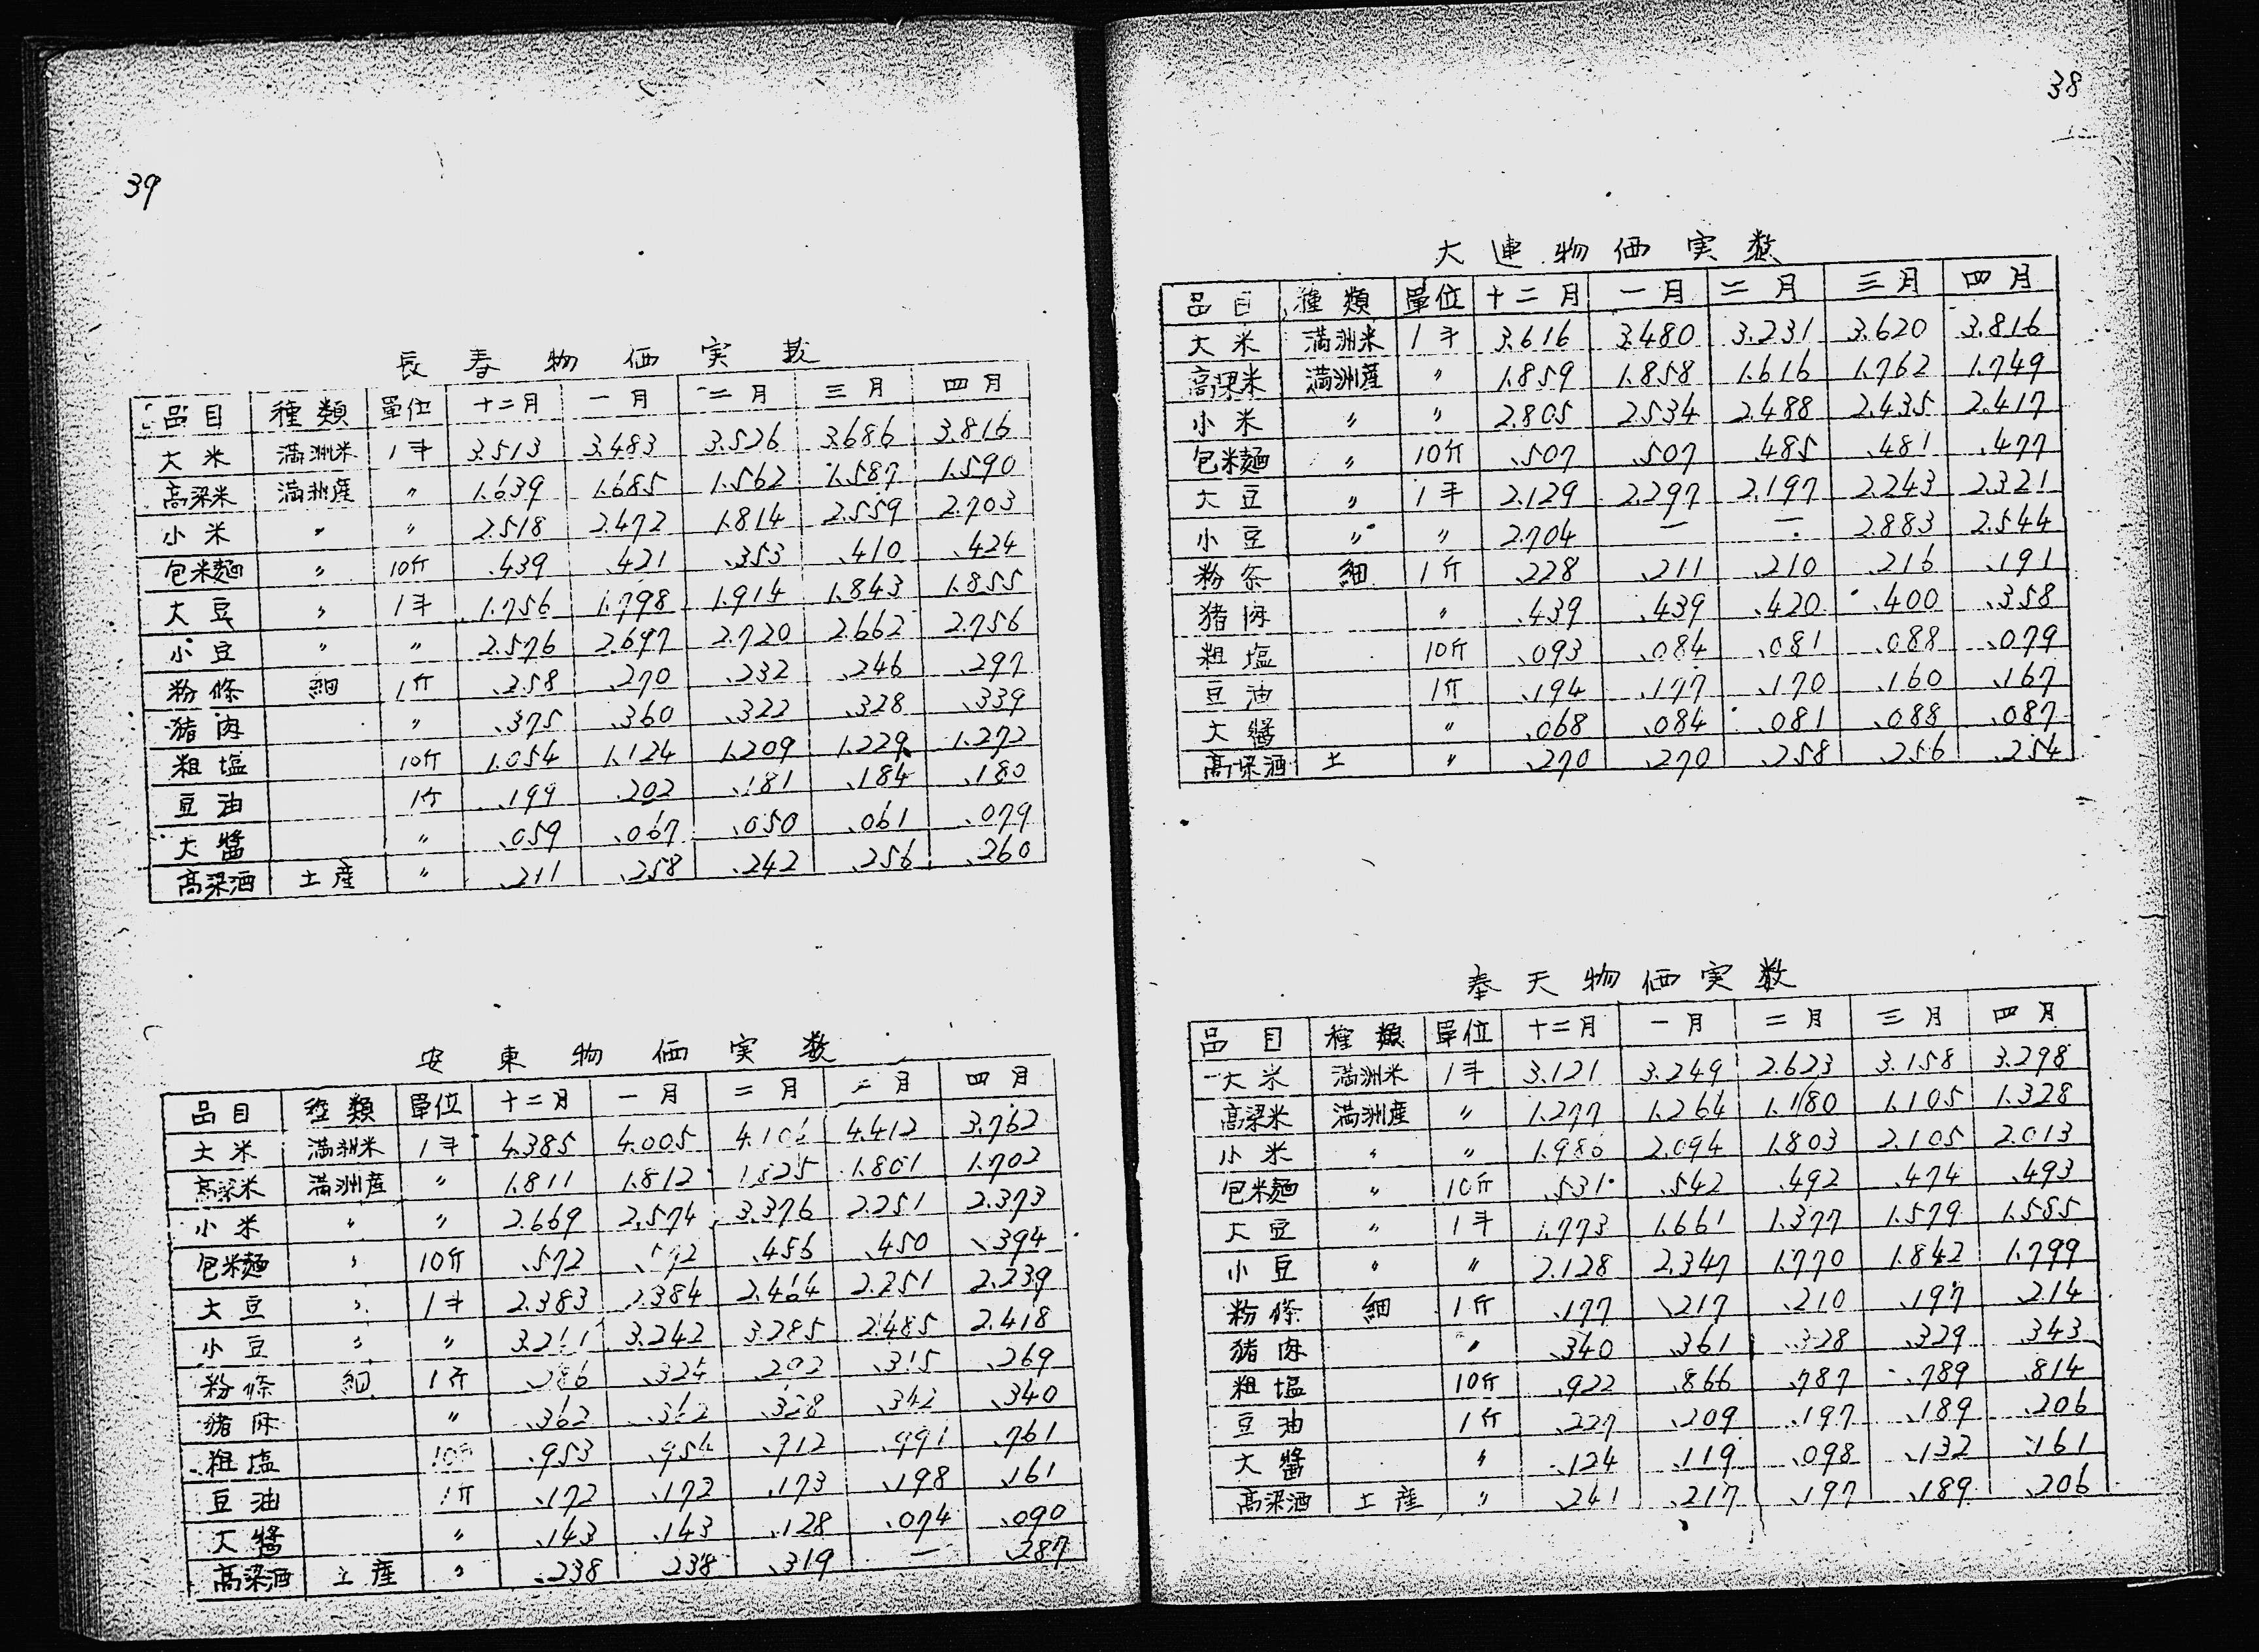 38
大連物価実数
品目 種類 單位 十二月 一月 二月 三月 四月
大米 満洲米 1斗 3.616 3.480 3.231 3.620 3.816
高梁米 満洲産 〃 1.859 1.858 1.616 1.762 1.749
小米 〃 〃 2.805 2.534 2.488 2.435 2.417
包米麵 〃 10斤 .507 .507 .485 .481 .477
大豆 〃 1斗 2.129 2.297 2.197 2.243 2.321
小豆 〃 〃 2.704 — — 2.883 2.544
粉条 細 1斤 .228 .211 .210 .216 .191
猪肉 〃 .439 .439 .420 .400 .358
粗塩 10斤 .093 .084 .081 .088 .079
豆油 1斤 .194 .177 .170 .160 .167
大醬 〃 .068 .084 .081 .088 .087
高梁酒 土 〃 .270 .270 .258 .256 .254
奉天物価実数
品目 種類 單位 十二月 一月 二月 三月 四月
大米 満洲米 1斗 3.121 3.249 2.623 3.158 3.298
高梁米 満洲産 〃 1.277 1.264 1.180 1.105 1.328
小米 〃 〃 1.986 2.094 1.803 2.105 2.013
包米麵 〃 10斤 .531 .542 .492 .474 .493
大豆 〃 1斗 1.773 1.661 1.377 1.579 1.585
小豆 〃 〃 2.128 2.347 1.770 1.842 1.799
粉條 細 1斤 .177 .217 .210 .197 .214
猪肉 〃 .340 .361 .328 .329 .343
粗塩 10斤 .922 .866 .787 .789 .814
豆油 1斤 .227 .209 .197 .189 .206
大醬 〃 .124 .119 .098 .132 .161
高梁酒 土産 〃 .241 .217 .197 .189 .206
39
長春物価実数
品目 種類 單位 十二月 一月 二月 三月 四月
大米 満洲米 1斗 3.513 3.483 3.526 3.686 3.816
高梁米 満洲産 〃 1.639 1.685 1.562 1.587 1.590
小米 〃 〃 2.518 2.472 1.814 2.559 2.703
包米麵 〃 10斤 .439 .421 .353 .410 .424
大豆 〃 1斗 1.756 1.798 1.914 1.843 1.855
小豆 〃 〃 2.576 2.697 2.720 2.662 2.756
粉條 細 1斤 .258 .270 .232 .246 .297
猪肉 〃 .375 .360 .322 .328 .339
粗塩 10斤 1.054 1.124 1.209 1.229 1.272
豆油 1斤 .199 .202 .181 .184 .180
大醬 〃 .059 .067 .050 .061 .079
高梁酒 土産 〃 .211 .258 .242 .256 .260
安東物価実数
品目 種類 單位 十二月 一月 二月 月 四月
大米 満洲米 1斗 4.385 4.005 4.412 3.762
高梁米 満洲産 〃 1.811 1.812 1.525 1.801 1.702
小米 〃 〃 2.669 2.574 3.376 2.251 2.373
包米麵 〃 10斤 .572 .456 .450 .394
大豆 〃 1斗 2.383 2.384 2.464 2.251 2.239
小豆 〃 〃 3.242 3.285 2.485 2.418
粉條 細 1斤 .324 .315 .269
猪肉 〃 .362 .328 .342 .340
粗塩 .953 .954 .712 .991 .761
豆油 1斤 .172 .172 .173 .198 .161
大醬 〃 .143 .143 .128 .074 .090
高梁酒 土産 〃 .238 .238 .319 — .287